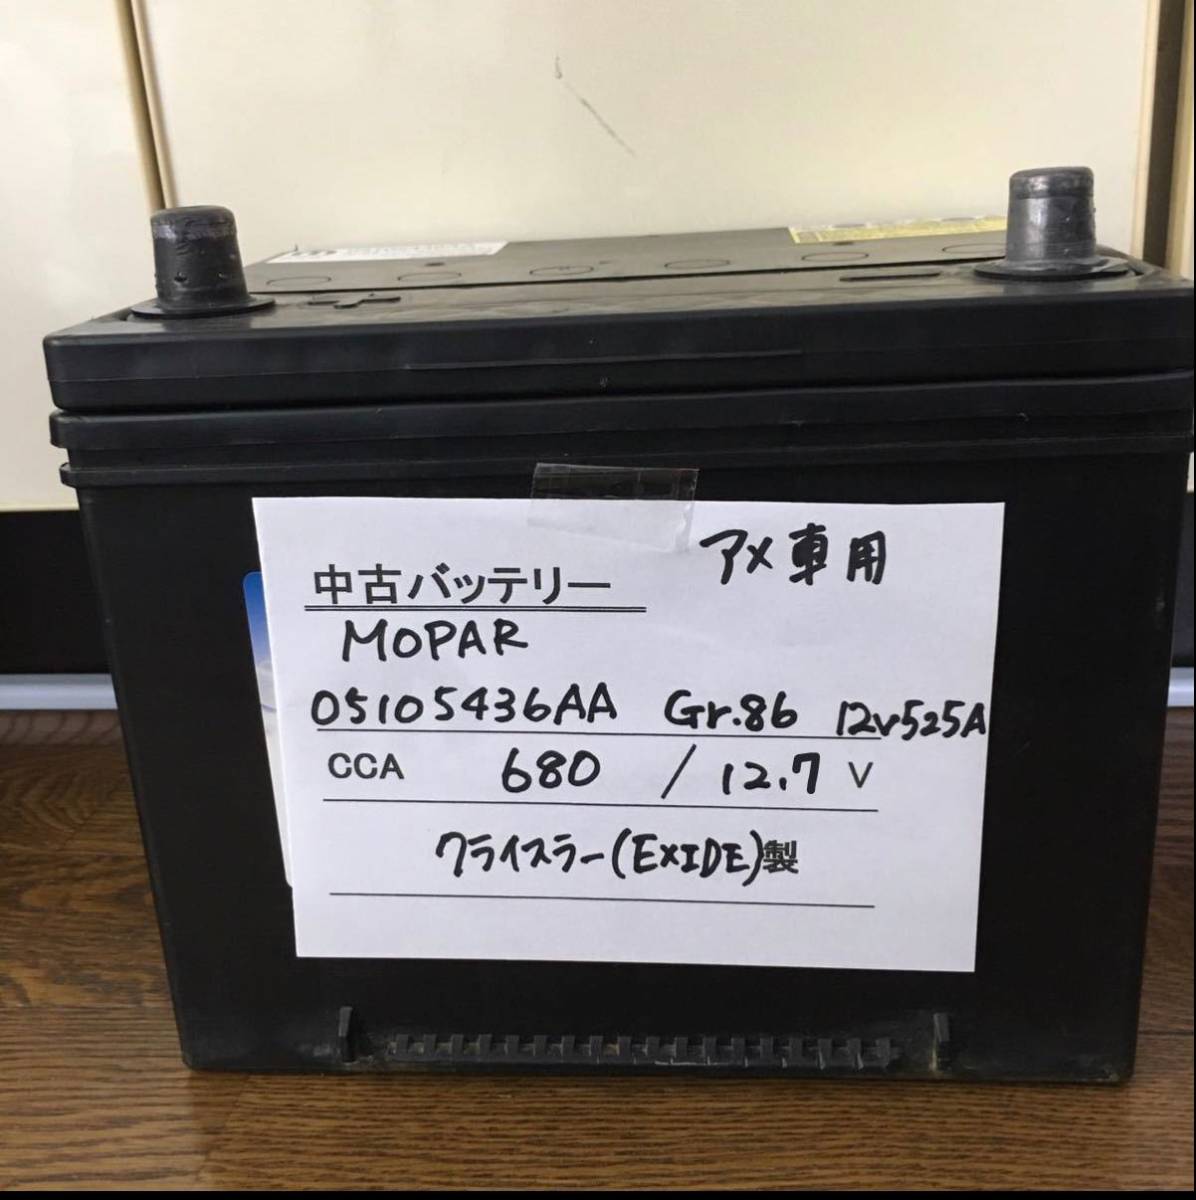 アメ車用
中古バッテリー
MOPAR
05105436AA Gr.86 12v525A
CCA 680 / 12.7 V
クライスラー(EXIDE)製